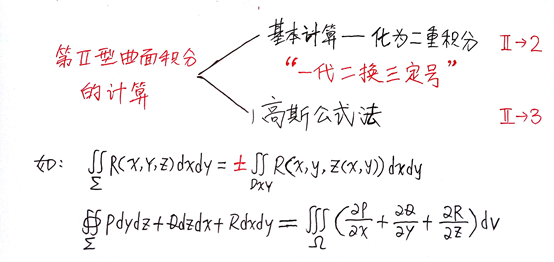 第Ⅱ型曲面积分的计算
基本计算—化为二重积分 Ⅱ→2
“一代二换三定号”
高斯公式法 Ⅱ→3
如: ∬_Σ R(x,y,z)dxdy = ± ∬_{Dxy} R(x,y,z(x,y))dxdy
∯_Σ Pdydz+Qdzdx+Rdxdy = ∭_Ω (∂P/∂x + ∂Q/∂y + ∂R/∂z)dv